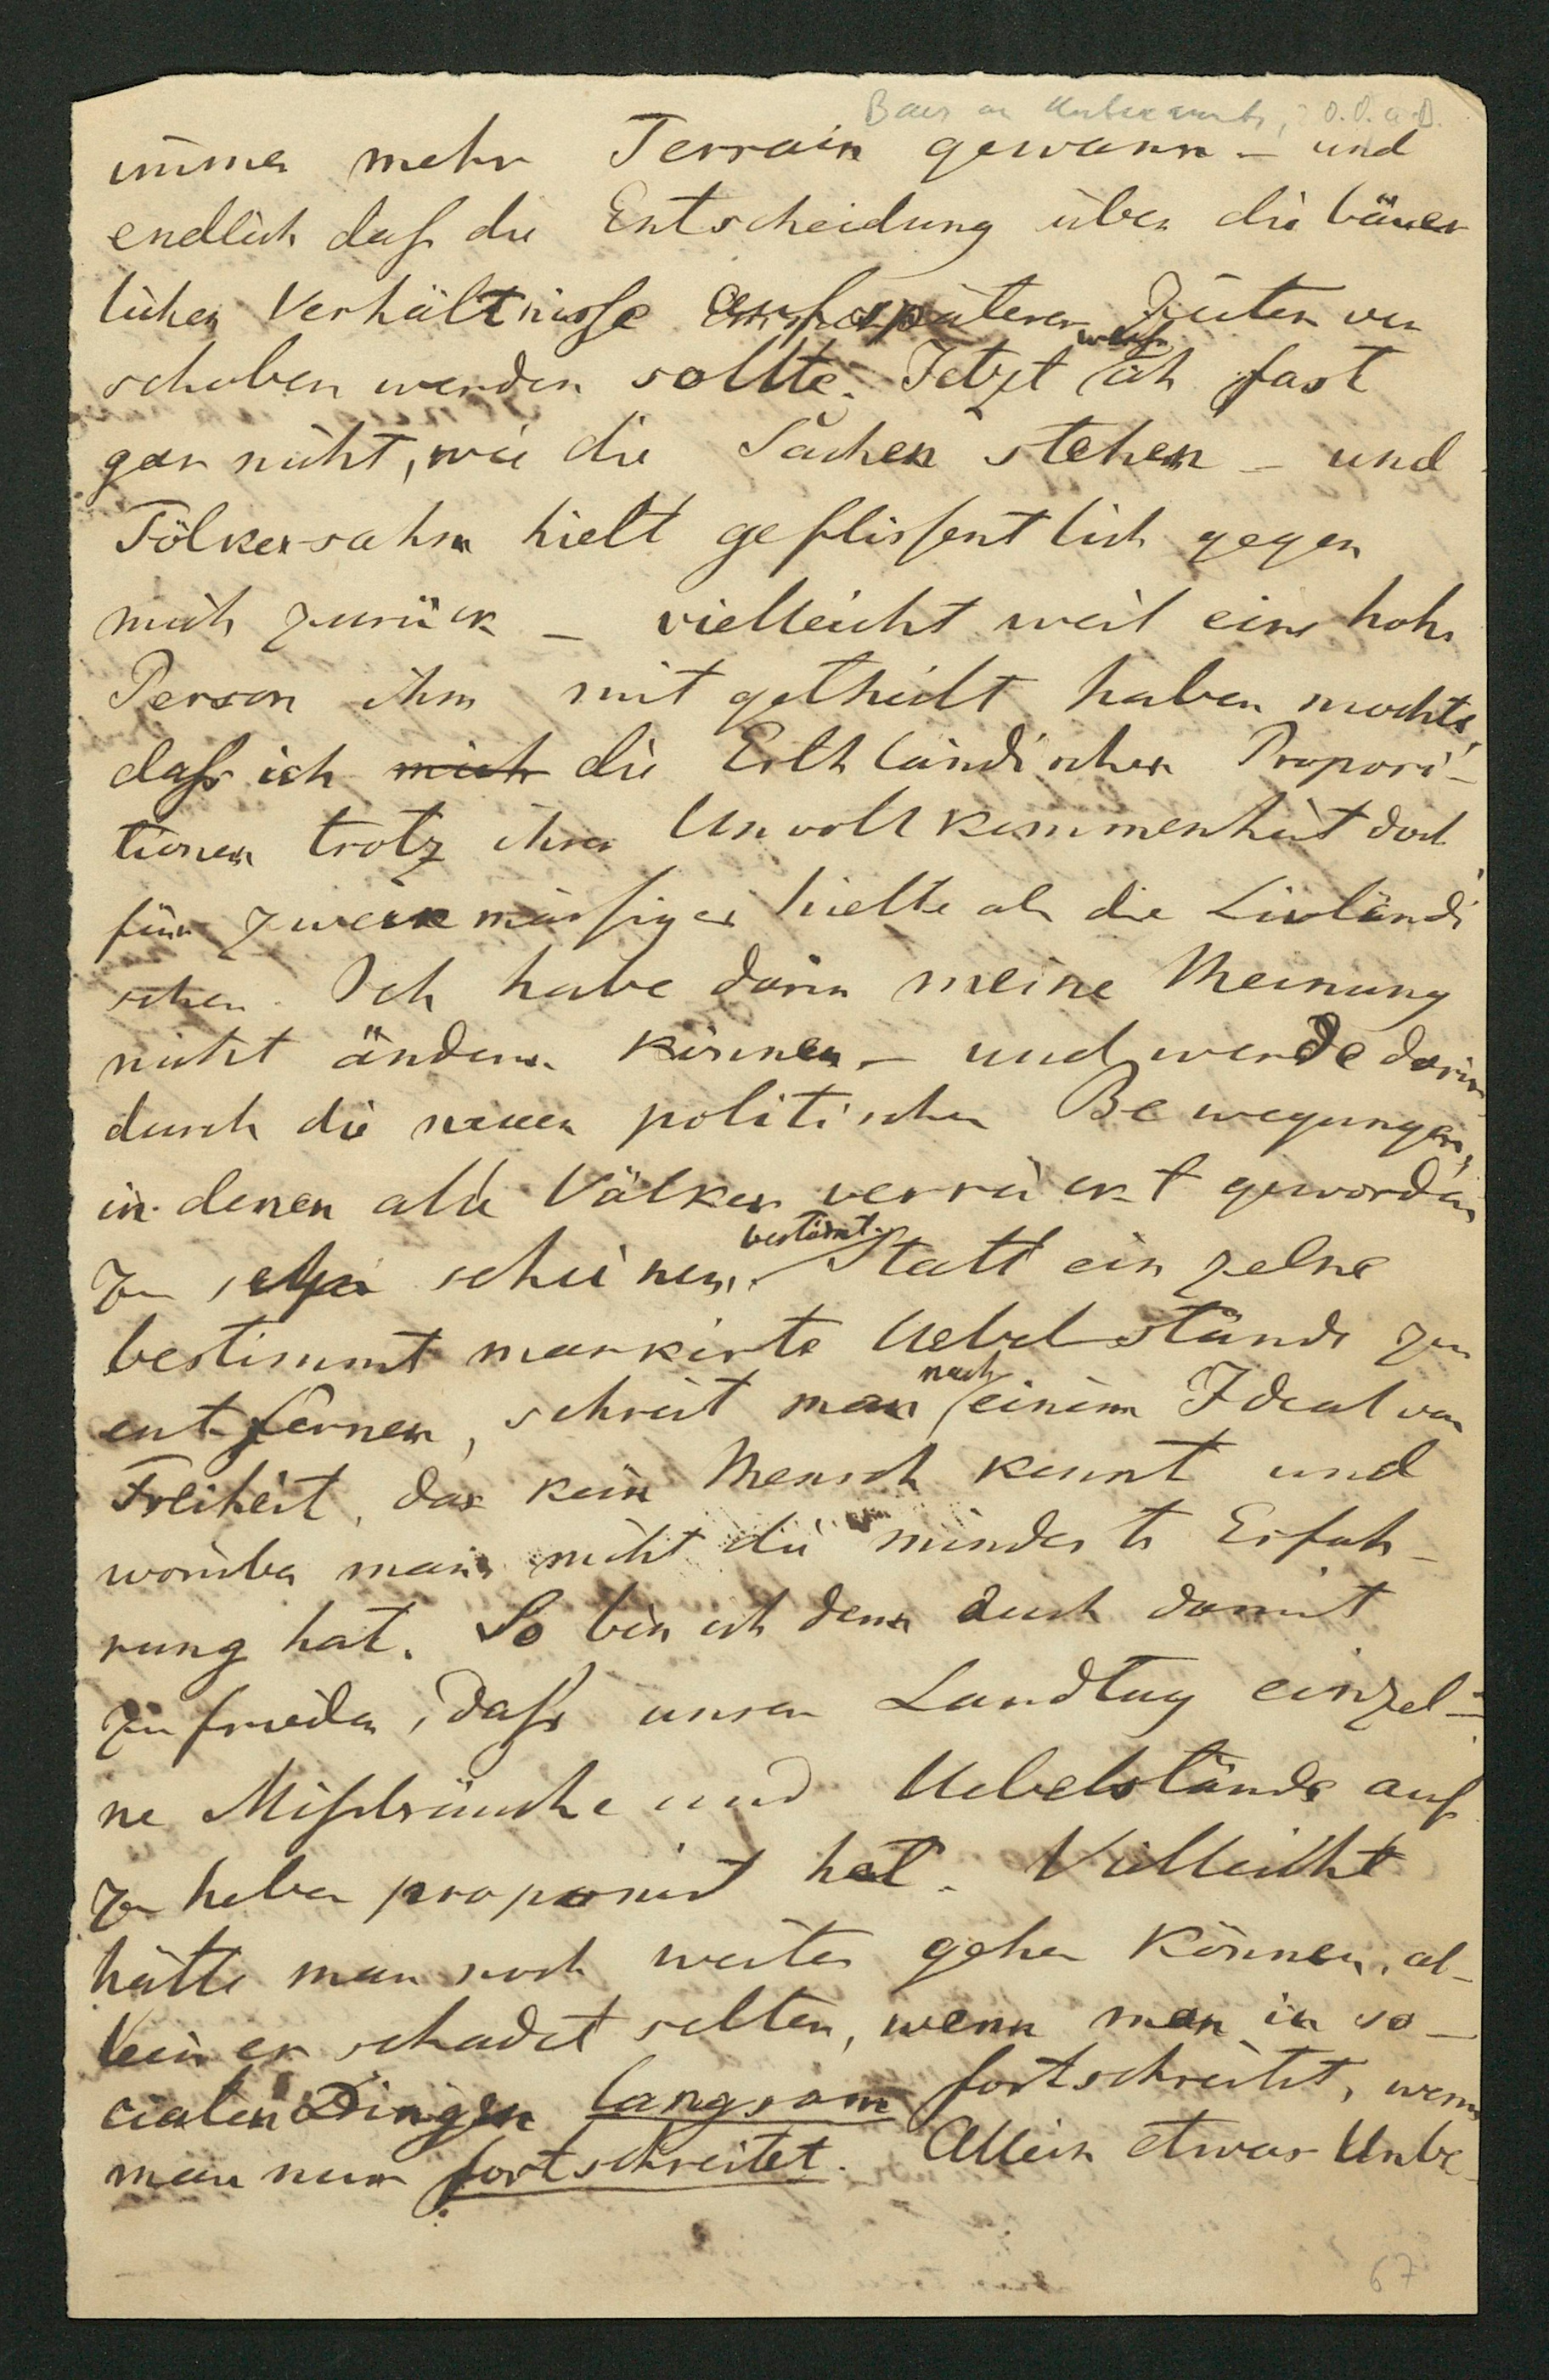 Baer an Unbekannt, O. O. u. D.
immer mehr Terrain gewann – und
endlich daß die Entscheidung über die bäuer
lichen Verhältnisse auf späteren Zeiten ver
schoben werden sollte. Jetzt weiß ich fast
gar nicht, wie die Sachen stehen – und
Fölkersahm hielt geflissentlich gegen
mich zurück – vielleicht weil eine hohe
Person ihm mit getheilt haben mochte,
daß ich mich die Esthländischen Proposi-
tionen trotz ihrer Unvollkommenheit doch
für zweckmässiger hielte als die Livländi
schen. Ich habe darin meine Meinung
nicht ändern können – und werde darin
durch die neuen politischen Bewegungen,
in denen alle Völker verrückt geworden
zu seyn scheinen, bestärkt. Statt einzelne
bestimmt markirte Uebelstände zu
entfernen, schreit man nach einem Ideal von
Freiheit, das kein Mensch kennt und
worüber man nicht die mindeste Erfah-
rung hat. So bin ich denn auch damit
zufrieden, daß unser Landtag einzel-
ne Mißbräuche und Uebelstände auf
zu heben proponirt hat. Vielleicht
hätte man noch weiter gehen können, al-
lein es schadet selten, wenn man in so-
cialen Dingen langsam fortschreitet, wenn
man nur fortschreitet. Allein etwas Unbe-
67